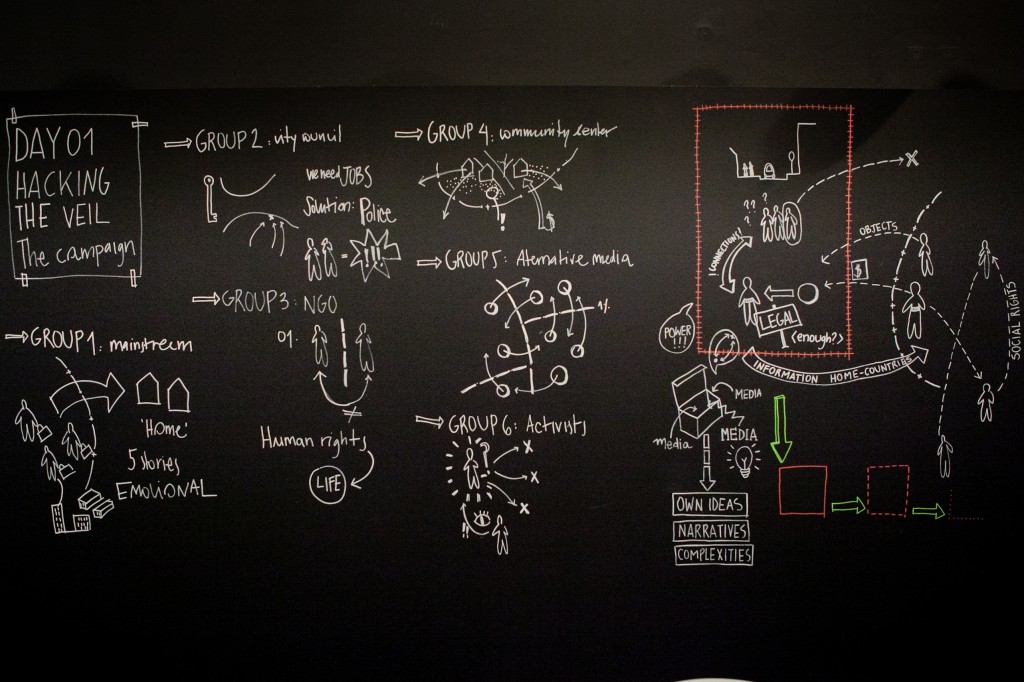 DAY 01
HACKING
THE VEIL
The campaign
GROUP 1: mainstream
'Home'
5 stories
EMOTIONAL
GROUP 2: city council
we need JOBS
Solution: Police
= !!!!
GROUP 3: NGO
01.
≠
Human rights
LIFE
GROUP 4: community center
!
$
GROUP 5: Alternative media
1%
GROUP 6: Activists
?
X
X
X
!!
?? ??
X
¡CONNECTIONS!
LEGAL
(enough?)
POWER
!!!
OBJECTS
$
SOCIAL RIGHTS
INFORMATION HOME-COUNTRIES
MEDIA
media
MEDIA
OWN IDEAS
NARRATIVES
COMPLEXITIES